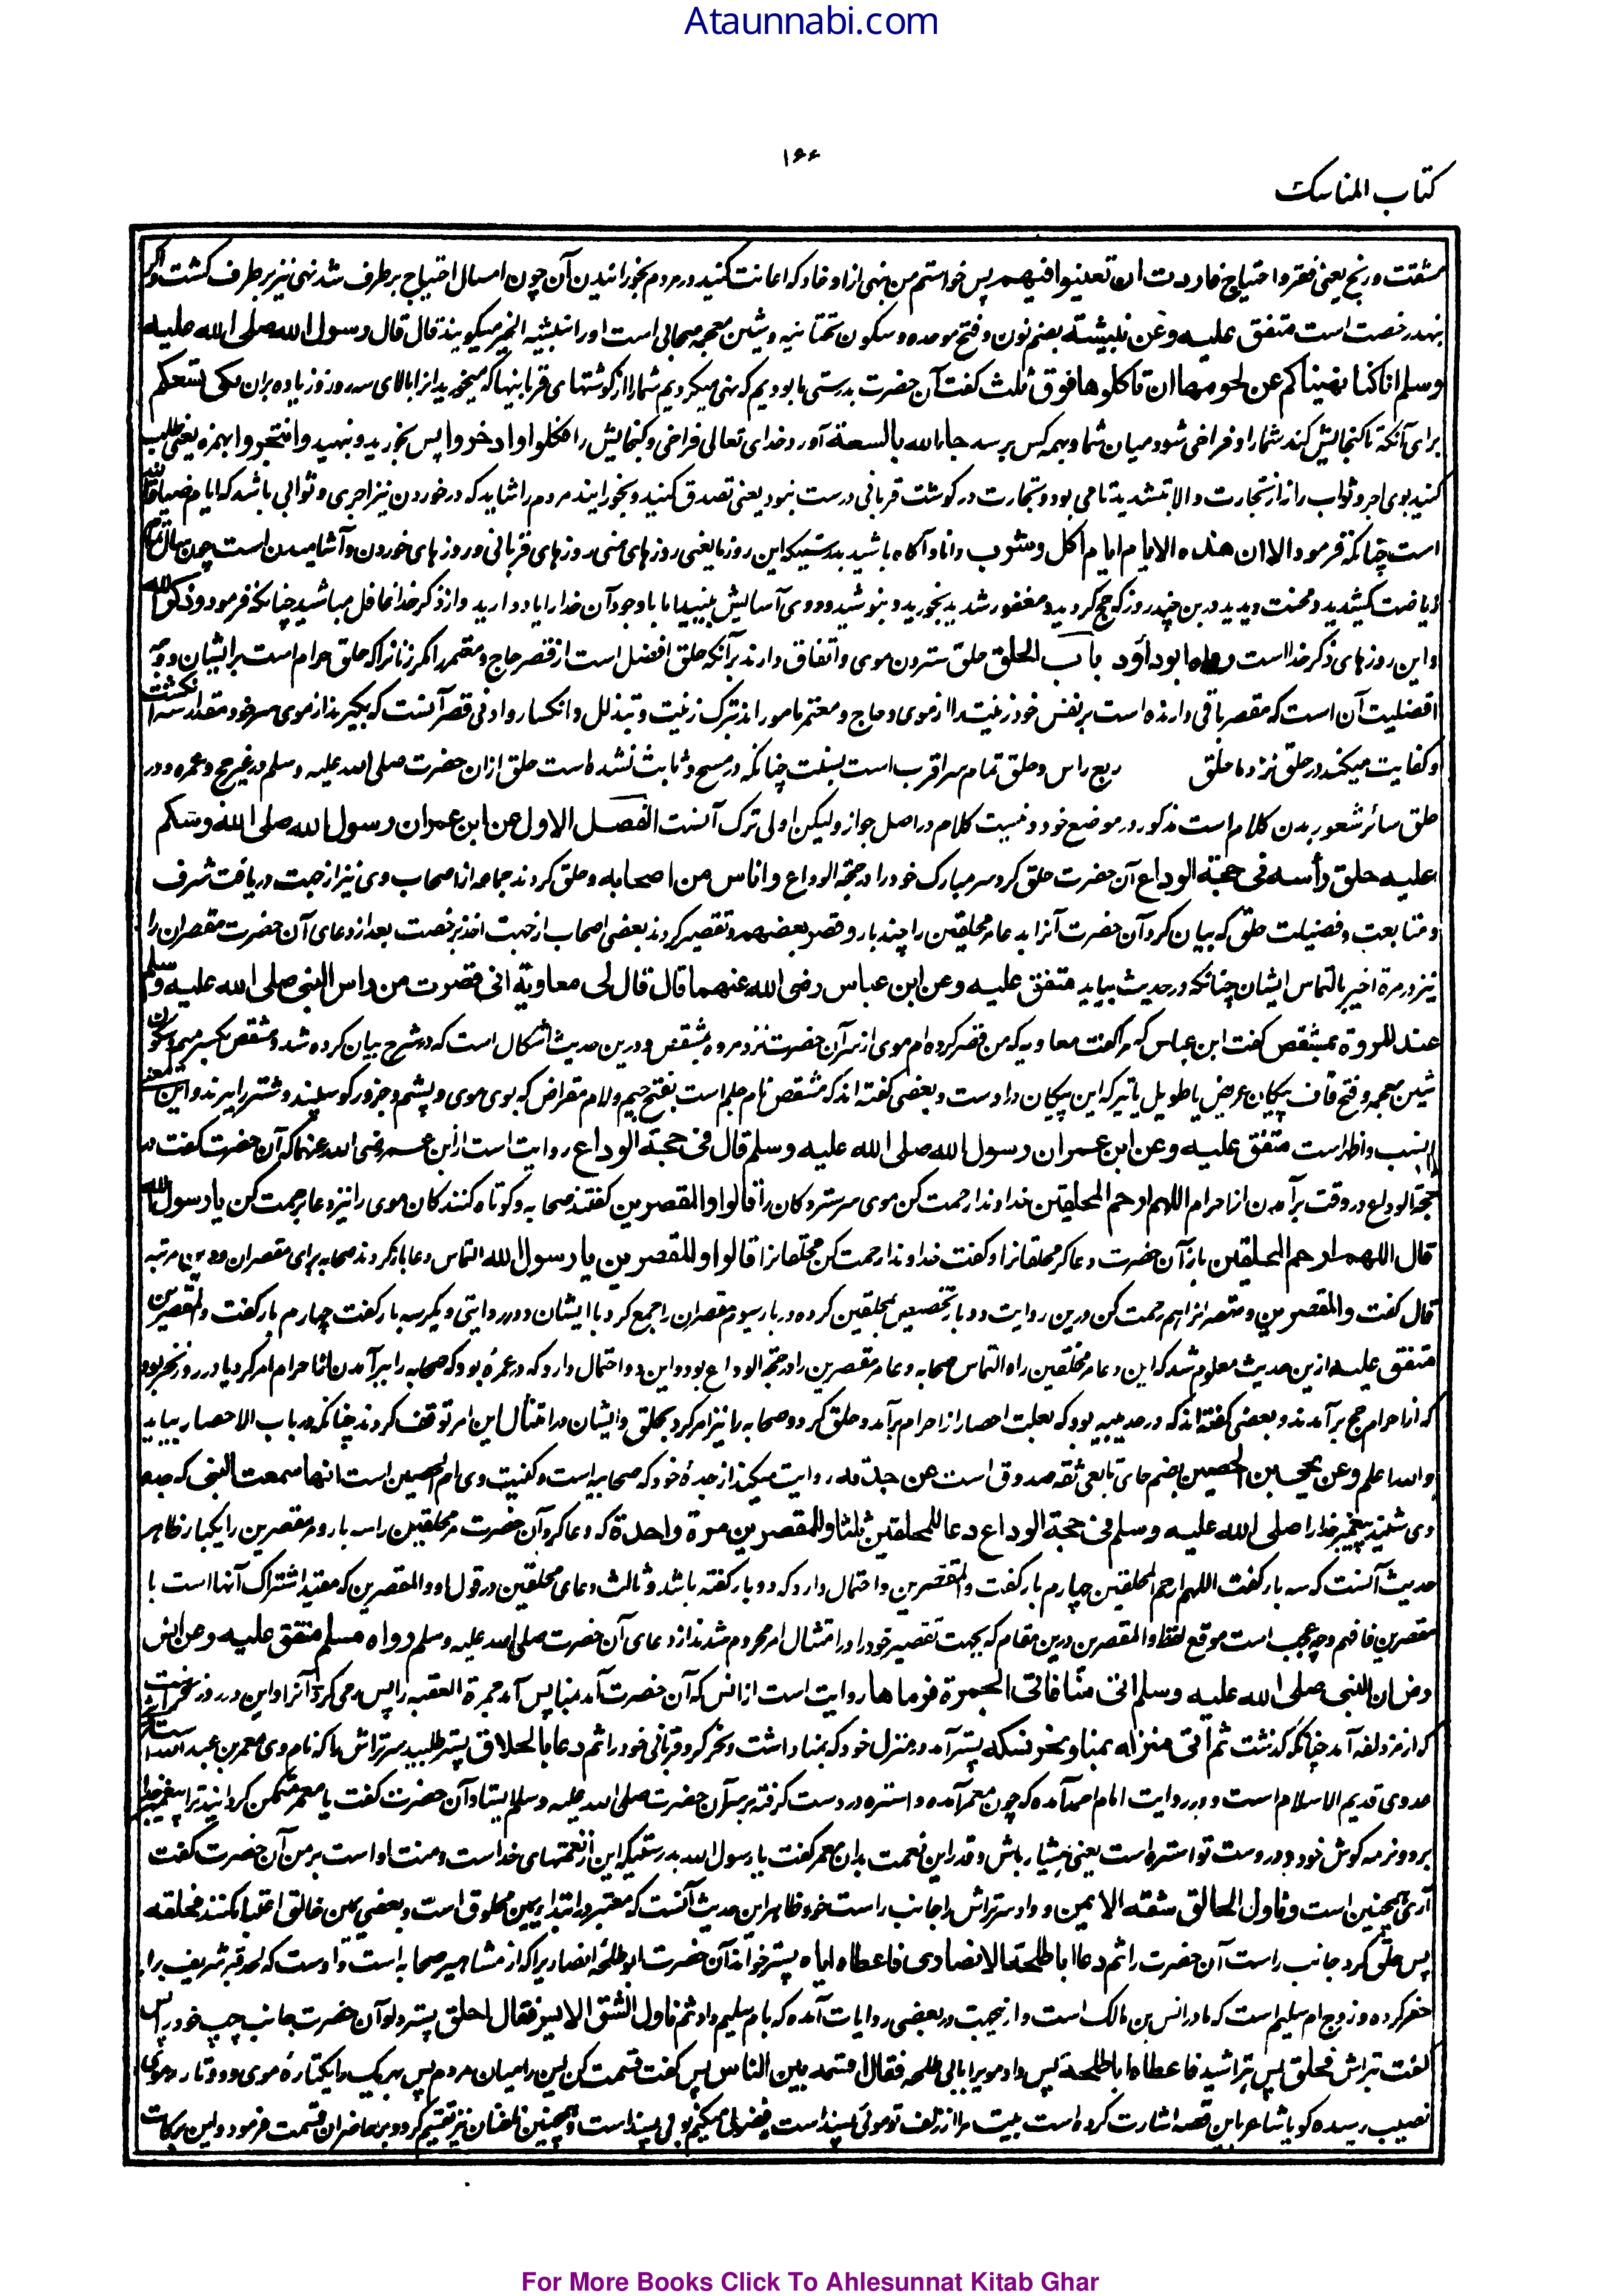 Ataunnabi.com
۱۶۶
کتاب المناسک
مشقت و رنج یعنی فقر و احتیاج فاردت ان تعینوا فیهم پس خواستم من بنهی از او خار که اعانت کنید در مردم بخورانیدن آن چون امسال احتیاج بر طرف شد نهی نیز بر طرف گشت اگر
بنهد رخصت است متفق علیه وعن نبیشة بضم نون و فتح موحده و سکون تحتانیه و شین معجمه صحابی است او را نبیشة الخیر میگویند قال قال رسول الله صلی الله علیه
وسلم انا کنا نهیناکم عن لحومها ان تاکلوها فوق ثلث گفت آن حضرت بدرستی ما بودیم که نهی میکردیم شما را از گوشتهای قربانیها که میخورید انرا بالای سه روز و زیاده بران لکی تسعکم
برای آنکه تا گنجایش کند شما را و فراخی شود میان شما و بهمه کس برسد جاء الله بالسعة آورد خدای تعالی فراخی و گنجایش را فکلوا وادخروا پس بخورید و بنهید وائتجروا بهمزه یعنی طلب
کنید بوی اجر و ثواب را نه از تجارت و الا بتشدید تا می بود و تجارت در گوشت قربانی درست نبود یعنی تصدق کنید و بخورانید مردم را شاید که در خوردن نیز اجری و ثوابی باشد که ایام ضیافة الله
است چنانکه فرمود الا ان هذه الایام ایام اکل وشرب دانا و آگاه باشید بدرستیکه این روزها یعنی روزهای منی روزهای قربانی و روزهای خوردن و آشامیدن است چون سال تمام
ریاضت کشیدید و محنت دیدید درین چند روز که حج کردید و مغفور شدید بخورید و بنوشید و روی آسایش ببینید اما با وجود آن خدا را یاد دارید و از ذکر خدا غافل مباشید چنانکه فرمود وذکر الله
و این روزهای ذکر خدا است رواه ابوداؤد باب الحلق حلق ستردن موی و اتفاق دارند بر آنکه حلق افضل است از قصر حاج و معتمر را مگر زنانرا که حلق حرام است بر ایشان و وجه
افضلیت آن است که مقصر باقی دارنده است بر نفس خود زینت را از موی و حاج و معتمر مامور اند بترک زینت و تبذلل و انکسار و ادنی قصر آنست که بگیرند از موی سر خود مقدار سر انگشت
و کفایت میکند در حلق نزد ما حلق ربع راس و حلق تمام سر اقرب است بسنت چنانکه در مسح و ثابت نشده است حلق ازان حضرت صلی الله علیه وسلم در غیر حج و عمره و در
حلق سائر شعور بدن کلام است مذکور در موضع خود و نیست کلام در اصل جواز و لیکن اولی ترک آنست الفصل الاول عن ابن عمر ان رسول الله صلی الله وسلم
علیه حلق رأسه فی حجة الوداع آن حضرت حلق کرد سر مبارک خود را در حجة الوداع واناس من اصحابه و حلق کردند جماعه از اصحاب وی نیز از جهت دریافت شرف
و متابعت و فضیلت حلق که بیان کرد آن حضرت آنرا بدعا مر محلقین را چند بار وقصر بعضهم و تقصیر کردند بعضی اصحاب از جهت اخذ برخصت بعد از دعای آن حضرت مقصران را
نیز در مرة اخیر بالتماس ایشان چنانکه در حدیث بیاید متفق علیه وعن ابن عباس رضی الله عنهما قال قال لی معاویة انی قصرت من راس النبی صلی الله علیه وسلم
عند المروة بمشقص گفت ابن عباس که مرا گفت معاویه که من قصر کرده ام موی از سر آن حضرت نزد مروه بمشقص و درین حدیث اشکال است که در شرح بیان کرده شد و مشقص بکسر میم و سکون
شین معجمه و فتح قاف پیکان عریض یا طویل یا تیر که این پیکان در اوست و بعضی گفته اند که مشقص نام جلم است بفتح جیم و لام مقراض که بوی موی و پشم و جز در گوسپند و شتر را ببرند و این معنی
انسب و اظهر است متفق علیه وعن ابن عمر ان رسول الله صلی الله علیه وسلم قال فی حجة الوداع روایت است از ابن عمر رضی الله عنهما که آن حضرت گفت در
حجة الوداع در وقت برآمدن از احرام اللهم ارحم المحلقین خداوندا رحمت کن موی سر ستردگان را قالوا والمقصرین گفتند صحابه و کوتاه کنندگان موی را نیز دعا برحمت کن یا رسول الله
قال اللهم ارحم المحلقین باز آن حضرت دعا کر محلقانرا و گفت خداوندا رحمت کن محلقانرا قالوا والمقصرین یا رسول الله التماس دعا باز کردند صحابه برای مقصران درین مرتبه
قال گفت والمقصرین و مقصرانرا هم رحمت کن درین روایت دو بار تخصیص بمحلقین کرده در بار سیوم مقصران را جمع کرد با ایشان و در روایتی دیگر سه بار گفت چهارم بار گفت والمقصرین
متفق علیه ازین حدیث معلوم شد که این دعا مر محلقین را و التماس صحابه و دعا مر مقصرین را در حجة الوداع بود و این دو احتمال دارد که در عمره بود که صحابه را ببرآمدن از احرام امر کرد یا در روز نحر بود
که از احرام حج برآمدند و بعضی گفته اند که در حدیبیه بود که بعلت احصار از احرام برآمد و حلق کرد و صحابه را نیز امر کرد بحلق و ایشان در امتثال این امر توقف کردند چنانکه در باب الاحصار بیاید
والله اعلم وعن یحیی بن الحصین بضم حای تابعی ثقه صدوق است عن جدته روایت میکند از جدهٔ خود که صحابیه است و کنیت وی ام الحصین است انها سمعت النبی که جده
وی شنید پیغمبر خدا را صلی الله علیه وسلم فی حجة الوداع دعا للمحلقین ثلثا وللمقصرین مرة واحدة که دعا کرد آن حضرت مر محلقین را سه بار و مر مقصرین را یکبار ظاهر
حدیث آنست که سه بار گفت اللهم ارحم المحلقین چهارم بار گفت والمقصرین و احتمال دارد که دو بار گفته باشد و ثالث دعای محلقین در قول او والمقصرین که مفید اشتراک آنها است با
مقصرین فافهم وچه عجب است موقع لفظ والمقصرین درین مقام که بجهت تقصیر خود را در امتثال امر محروم شدند از دعای آن حضرت صلی الله علیه وسلم رواه مسلم متفق علیه وعن انس
رض ان النبی صلی الله علیه وسلم اتی منا فاتی الجمرة فرماها روایت است از انس که آن حضرت آمد بمنا پس آمد جمرة العقبه را پس رمی کرد آنرا و این در روز نحر است
که از مزدلفه آمد چنانکه گذشت ثم اتی منزله بمنا ونحر نسکه پستر آمد در منزل خود که بمنا داشت و نحر کرد قربانی خود را ثم دعا بالحلاق پستر طلبید سر تراش را که نام وی معمر بن عبد الله است
عدوی قدیم الاسلام است و در روایت امام احمد آمده که چون معمر آمده و استره در دست گرفته بر سر آن حضرت صلی الله علیه وسلم ایستاد آن حضرت گفت یا معمر متمکن گردانید ترا پیغمبر خدا
بر دو نرمه گوش خود و در دست تو استره است یعنی هشیار باش و قدر این نعمت بدان معمر گفت یا رسول الله بدرستیکه این از نعمتهای خداست و منت او است بر من آن حضرت گفت
آری همچنین است وناول الحالق شقه الایمن و داد سرتراش را جانب راست خود ظاهر این حدیث آنست که معتبر در ابتدا یمین محلوق است و بعضی یمین حالق اعتبار کنند فحلقه
پس حلق کرد جانب راست آن حضرت را ثم دعا ابا طلحة الانصاری فاعطاه ایاه پستر خواند آن حضرت ابو طلحهٔ انصاری را که از مشاهیر صحابه است و اوست که لحد قبر شریف را
حفر کرده و زوج ام سلیم است که مادر انس بن مالک است و ازینجهت در بعضی روایات آمده که بام سلیم داد ثم ناول الشق الایسر فقال احلق پستر داد آن حضرت جانب چپ خود را پس
گفت بتراش فحلق پس بتراشید فاعطاه ابا طلحة پس داد مویرا بابی طلحه فقال اقسمه بین الناس پس گفت قسمت کن این را میان مردم پس بهر یک را یکتارهٔ موی و دو تار موی
نصیب رسیده گویا شاعر باین قصه اشارت کرده است بیت مرا از زلف تو موئی پسند است فضولی میکنم بوئی پسند است و همچنین ناخنان نیز تقسیم کرد و بر حاضران قسمت فرمود و این برکات
For More Books Click To Ahlesunnat Kitab Ghar